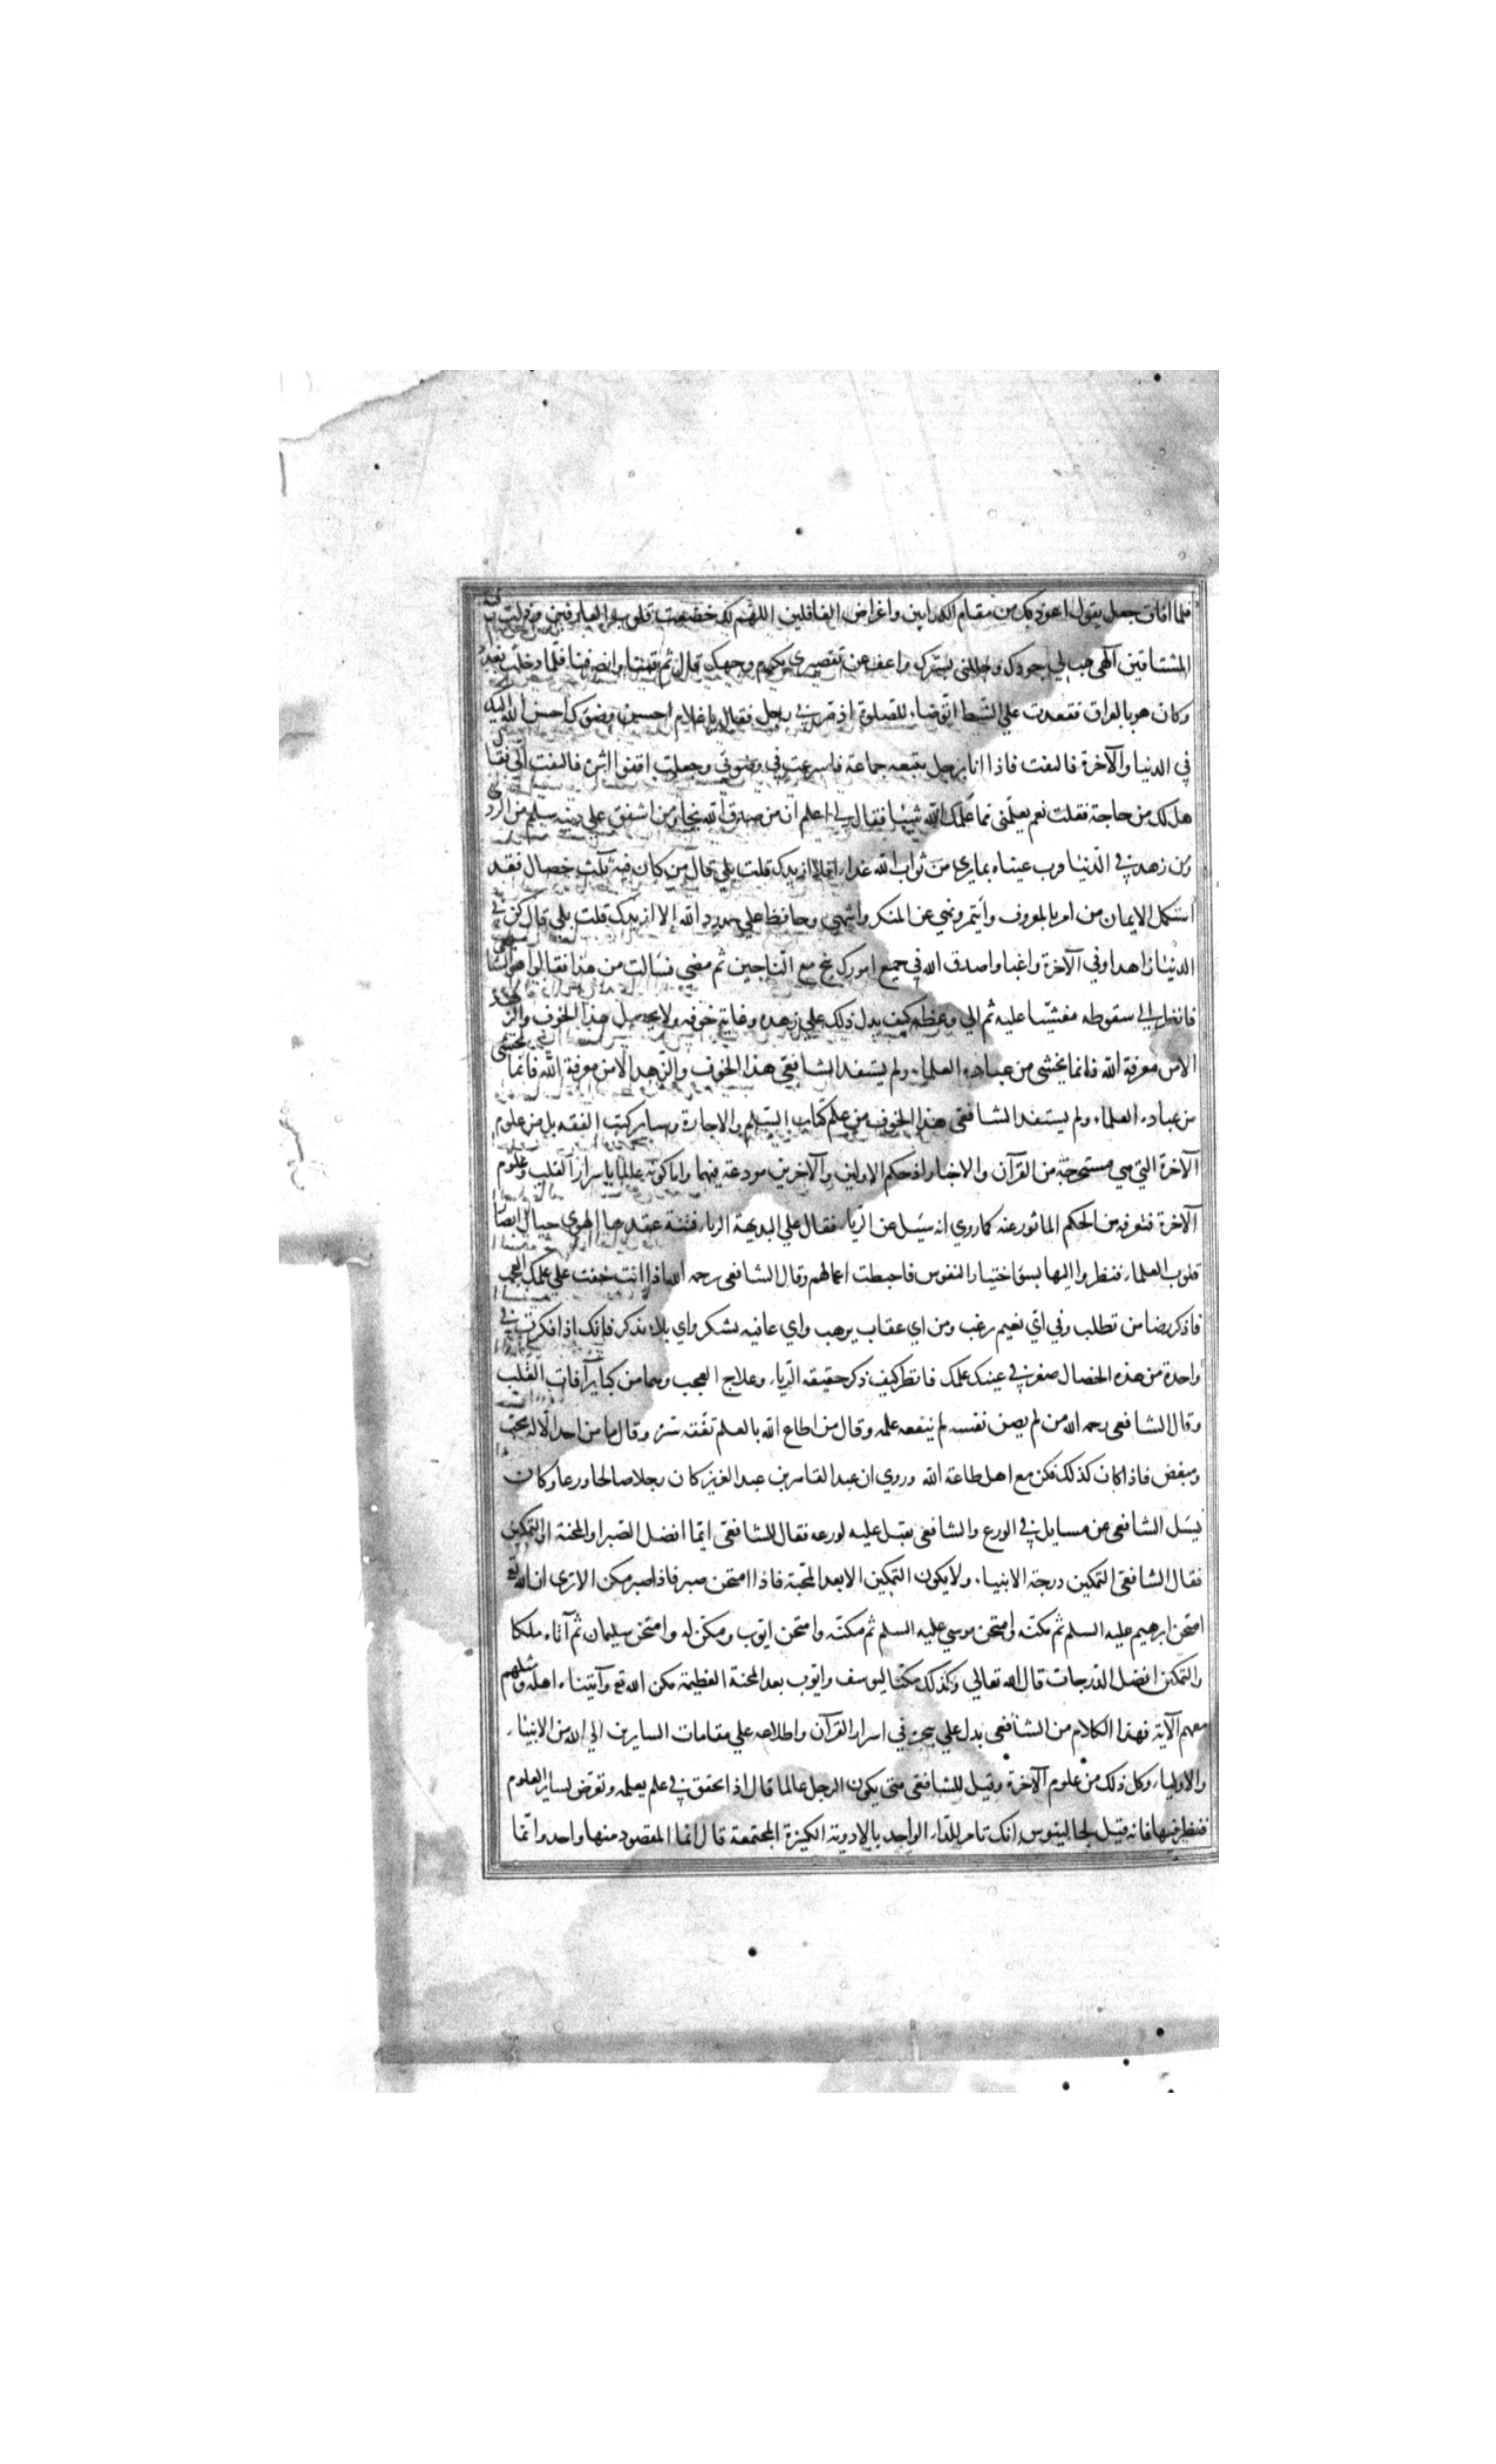 فلما افاق جعل يقول اعوذ بك من مقام الكذابين واعراض الغافلين اللهم لك خضعت قلوب العارفين وذلت
المشتاقين الهي هب لي جودك وجللني بسترك واعف عن تقصيري بكرم وجهك قال ثم قمنا وانصرفنا فلما دخلت بغداد
وكان هو بالعراق فقعدت علي الشط اتوضاء للصلوة اذ مر بي رجل فقال يا غلام احسن وضوك احسن الله اليك
في الدنيا والآخرة فالتفت فاذا انا برجل يتبعه جماعة فاسرعت في وضوئي وجعلت اقفوا اثره فالتفت الي فقال
هل لك من حاجة فقلت نعم تعلمني مما علمك الله شيئا فقال لي اعلم ان من صدق الله نجا ومن اشفق علي دينه سلم من الردي
ومن زهد في الدنيا قرت عيناه بما يري من ثواب الله غدا افلا ازيدك قلت بلي قال من كان فيه ثلث خصال فقد
استكمل الايمان من امر بالمعروف وائتمر ونهي عن المنكر وانتهي وحافظ علي حدود الله الا ازيدك قلت بلي قال كن في
الدنيا زاهدا وفي الآخرة راغبا واصدق الله في جميع امورك تنج مع الناجين ثم مضي فسالت من هذا فقالوا هو الشافعي
فانظر الي سقوطه مغشيا عليه ثم الي وعظه كيف يدل ذلك علي زهده وغاية خوفه ولا يحصل هذا الخوف والزهد
الا من معرفة الله فانما يخشي من عباده العلماء ولم يستفد الشافعي هذا الخوف والزهد الا من معرفة الله فانما يخشي
من عباده العلماء ولم يستفد الشافعي هذا الخوف من علم كتاب السلم والاجارة وساير كتب الفقه بل من علوم
الآخرة التي هي مستخرجة من القرآن والاخبار اذ حكم الاولين والآخرين مودعة فيهما واما كونه عالما باسرار القلب وعلوم
الآخرة فتعرفه من الحكم الماثور عنه كما روي انه سيل عن الرياء فقال علي البديهة الرياء فتنة عقدها الهوي حيال ابصار
قلوب العلماء فنظروا اليها بسوء اختيار النفوس فاحبطت اعمالهم وقال الشافعي رحمه الله اذا انت خفت علي عملك العجب
فاذكر رضا من تطلب وفي اي نعيم رغب ومن اي عقاب يرهب واي عافيه تشكر واي بلاء تذكر فانك اذا فكرت في
واحدة من هذه الخصال صغر في عينك عملك فانظر كيف ذكر حقيقه الرياء وعلاج العجب وهما من كباير آفات القلب
وقال الشافعي رحمه الله من لم يصن نفسه لم ينفعه علمه وقال من اطاع الله بالعلم نفعه سره وقال ما من احد الا له محب
ومبغض فاذا كان كذلك فكن مع اهل طاعة الله وروي ان عبد القاهر بن عبد العزيز كان رجلا صالحا ورعا وكان
يسل الشافعي عن مسايل في الورع والشافعي يقبل عليه لورعه فقال للشافعي ايما افضل الصبر او المحنة او التمكين
فقال الشافعي التمكين درجة الانبياء ولا يكون التمكين الا بعد المحنة فاذا امتحن صبر فاذا صبر مكن الا تري ان الله تع
امتحن ابرهيم عليه السلم ثم مكنه وامتحن موسي عليه السلم ثم مكنه وامتحن ايوب ومكن له وامتحن سليمان ثم آتاه ملكا
والتمكين افضل الدرجات قال الله تعالي وكذلك مكنا ليوسف وايوب بعد المحنة العظيمة مكن الله تع وآتيناه اهله ومثلهم
معهم الآية فهذا الكلام من الشافعي يدل علي تبحره في اسرار القرآن واطلاعه علي مقامات السايرين الي الله من الانبياء
والاولياء وكل ذلك من علوم الآخرة وقيل للشافعي متي يكون الرجل عالما قال اذا تحقق في علم يعلمه وتعرض لساير العلوم
فنظر فيها فانه قيل لجالينوس انك تامر للداء الواحد بالادوية الكثيرة المجتمعة قال انما المقصود منها واحد وانما